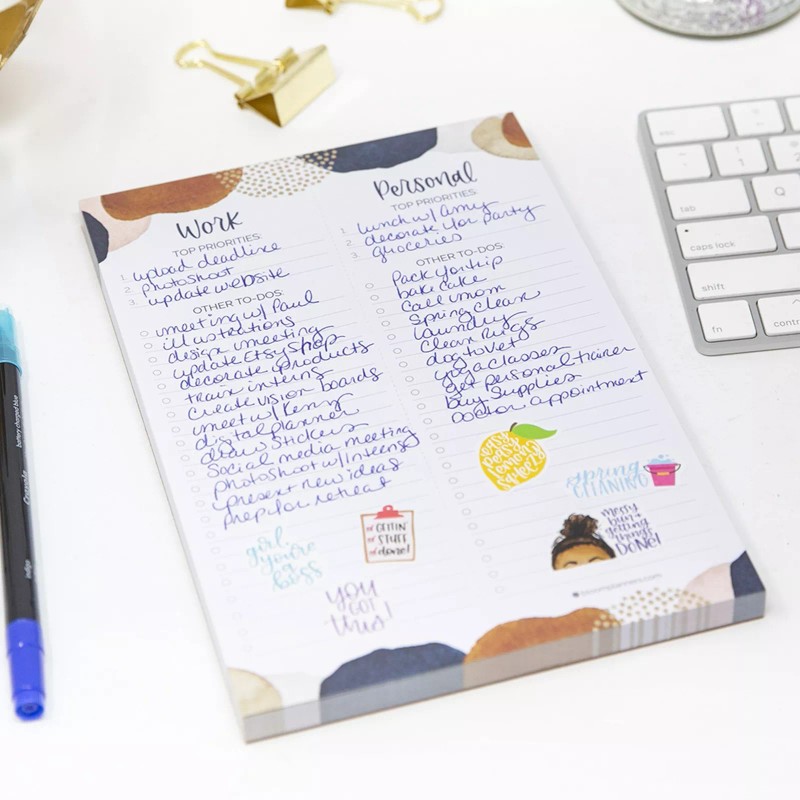 Work
TOP PRIORITIES:
1. upload deadline
2. photoshoot
3. update website
OTHER TO-DOS:
meeting w/ Paul
illustrations
design meeting
update Etsy shop
decorate products
train interns
create vision boards
meet w/ Kenzy
digital planner
draw stickers
Social media meeting
photoshoot w/ interns
present new ideas
prep for retreat
girl,
you're
a
boss
GETTIN'
STUFF
done!
YOU
GOT
this!
Personal
TOP PRIORITIES:
1. lunch w/ Amy
2. decorate for party
3. groceries
OTHER TO-DOS:
Pack for trip
bake cake
Call mom
Spring clean
laundry
Clean rugs
dog to vet
yoga classes
get personal trainer
buy supplies
Doctor appointment
easy
peasy
lemon
squeezy
spring
CLEANING
messy
bun +
getting
things
DONE!
bloomplanners.com
esc
1
tab
Q
caps lock
shift
fn
contr
battery charged blue
Crayola
indigo